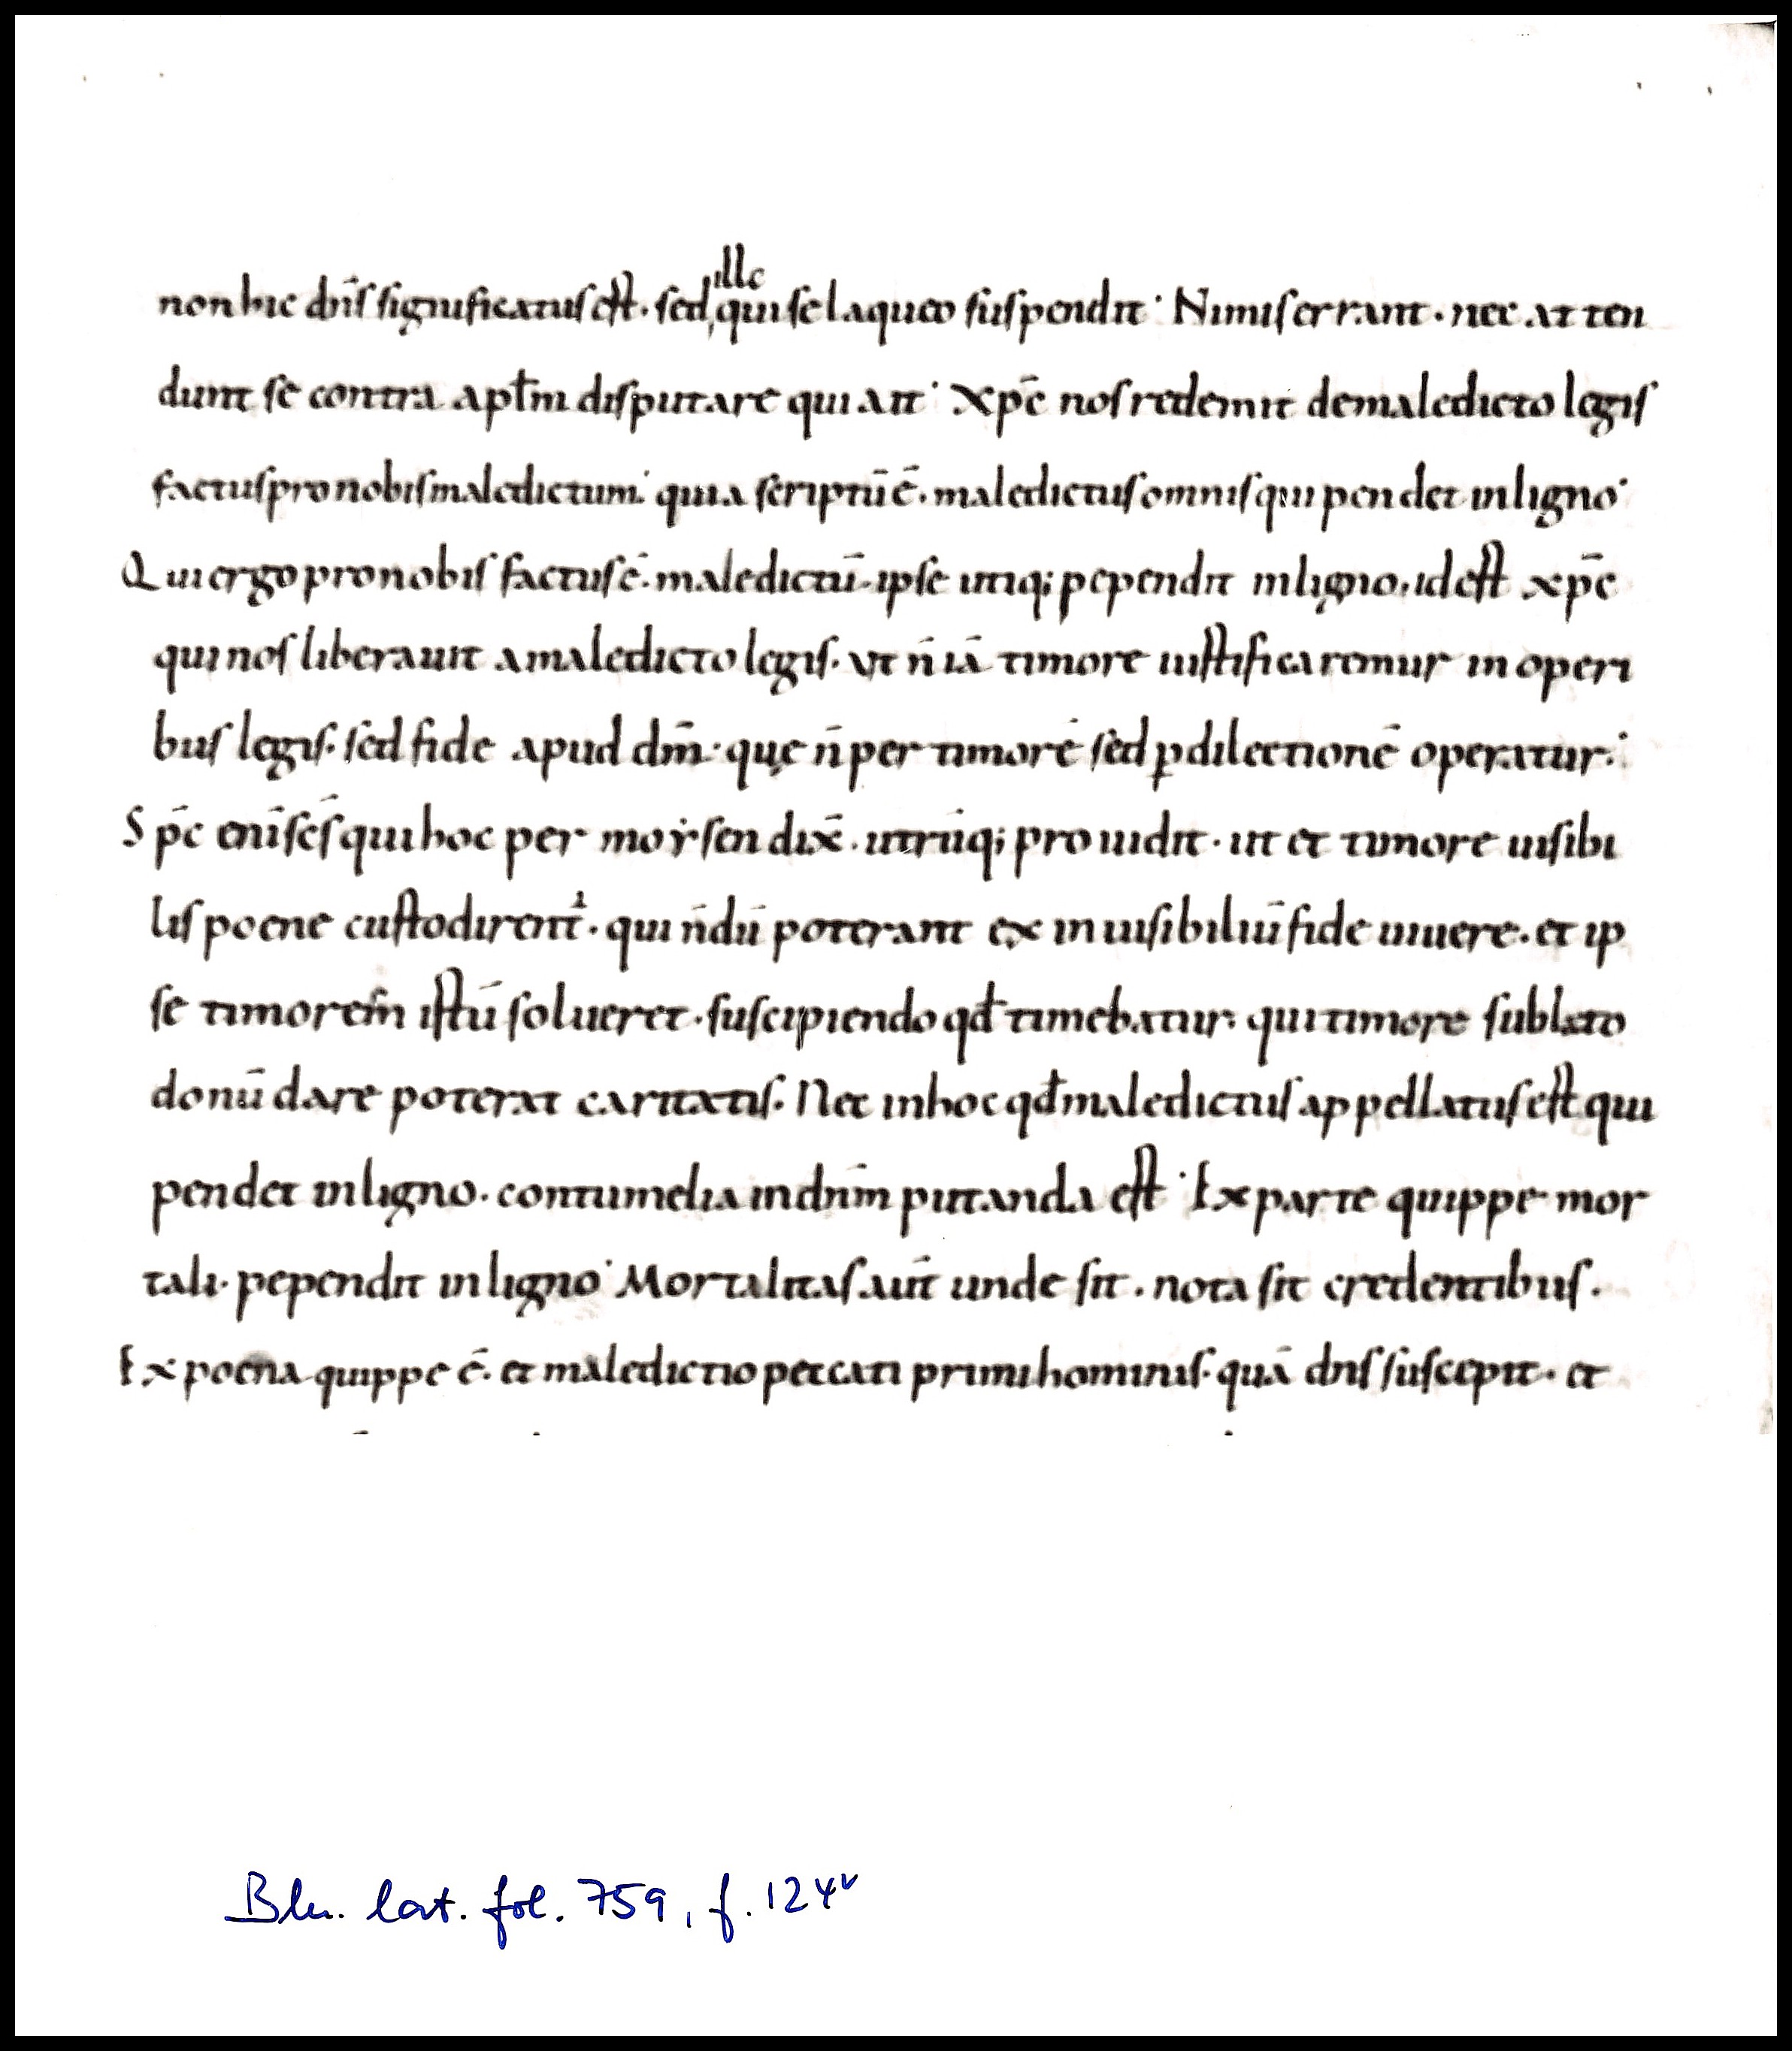 ille
non hic dn̄s significatus est. sed, qui se laqueo suspendit· Nimis errant. nec atten
dunt se contra apl̄m disputare qui ait· xp̄c nos redemit de maledicto legis
factus pro nobis maledictum· quia scriptū ē. maledictus omnis qui pendet in ligno·
Qui ergo pro nobis factus ē. maledictū. ipse utiq; pependit in ligno. id est xp̄c
qui nos liberauit a maledicto legis. ut n̄ iā timore iustificaremur in operi
bus legis. sed fide apud dm̄. quę n̄ per timorē sed ꝑ dilectionē operatur·
Sp̄c enī sc̄s qui hoc per moẏsen dix̄. utrūq; prouidit. ut et timore uisibi
lis poene custodirent᷑. qui n̄dū poterant ex inuisibiliū fide uiuere. et ip
se timorem istū solueret. suscipiendo qđ timebatur. qui timore sublato
donū dare poterat caritatis. Nec in hoc qđ maledictus appellatus est qui
pendet in ligno. contumelia in dnm̄ putanda est· Ex parte quippe mor
tali. pependit in ligno· Mortalitas aut̄ unde sit. nota sit credentibus.
Ex poena quippe ē. et maledictio peccati primi hominis. quā dn̄s suscepit. et
Bln. lat. fol. 759, f. 124v